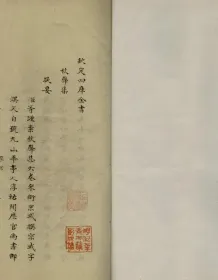 欽定四庫全書
秋聲集
提要
臣等謹案秋聲集六卷宋衛宗武撰宗武字
淇父自號九山華亭人淳祐間歷官尚書郎